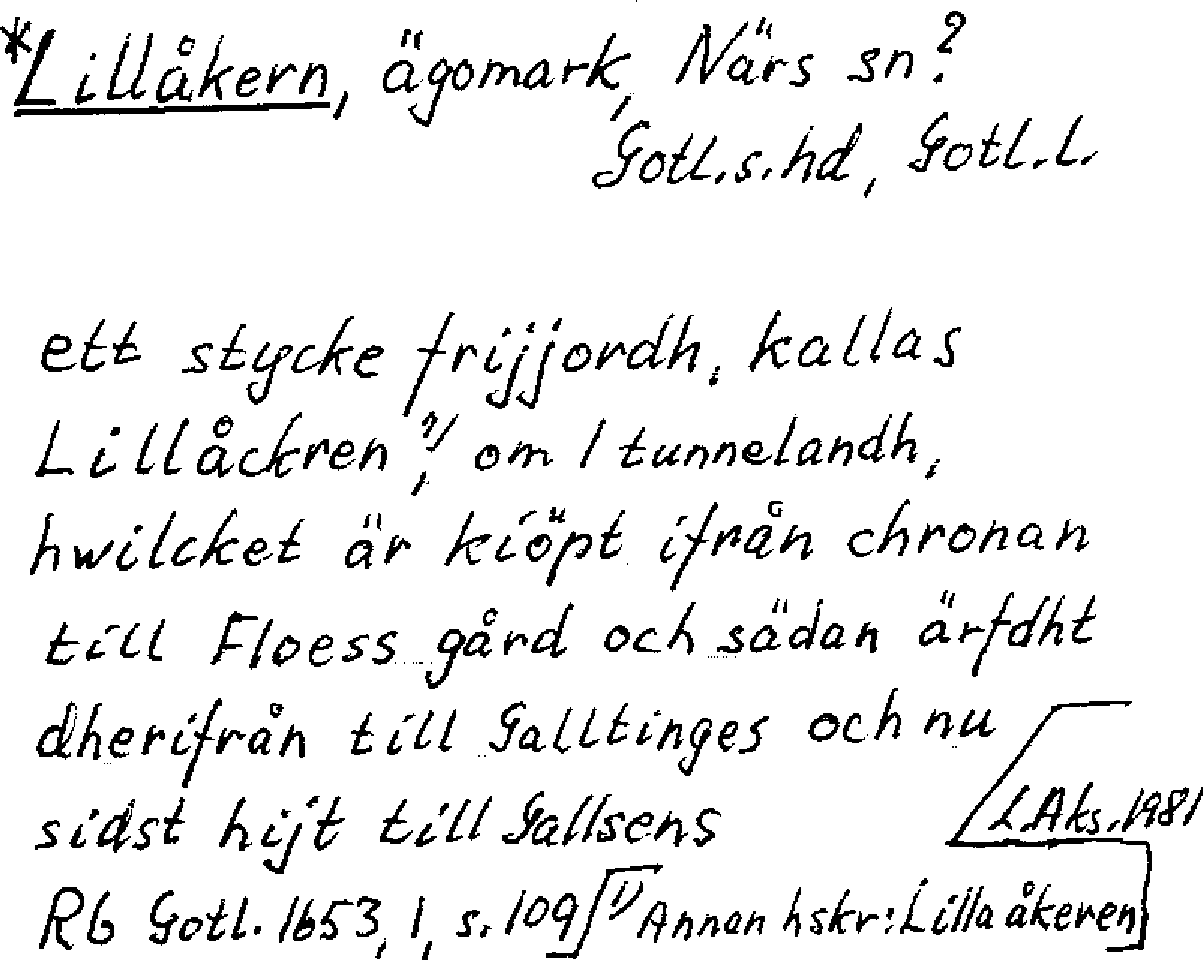 *Lillåkern, ägomark, Närs sn?
Gotl.s.hd, Gotl.l.
ett stycke frijjordh, kallas
Lillåckren 1), om 1 tunnelandh,
hwilcket är kiöpt ifrån chronan
till Floess gård och sädan ärfdht
dherifrån till Galltinges och nu
sidst hijt till Gallsens
L.Aks.1981
Rb Gotl. 1653, 1, s. 109 1) Annan hskr: Lilla åkeren